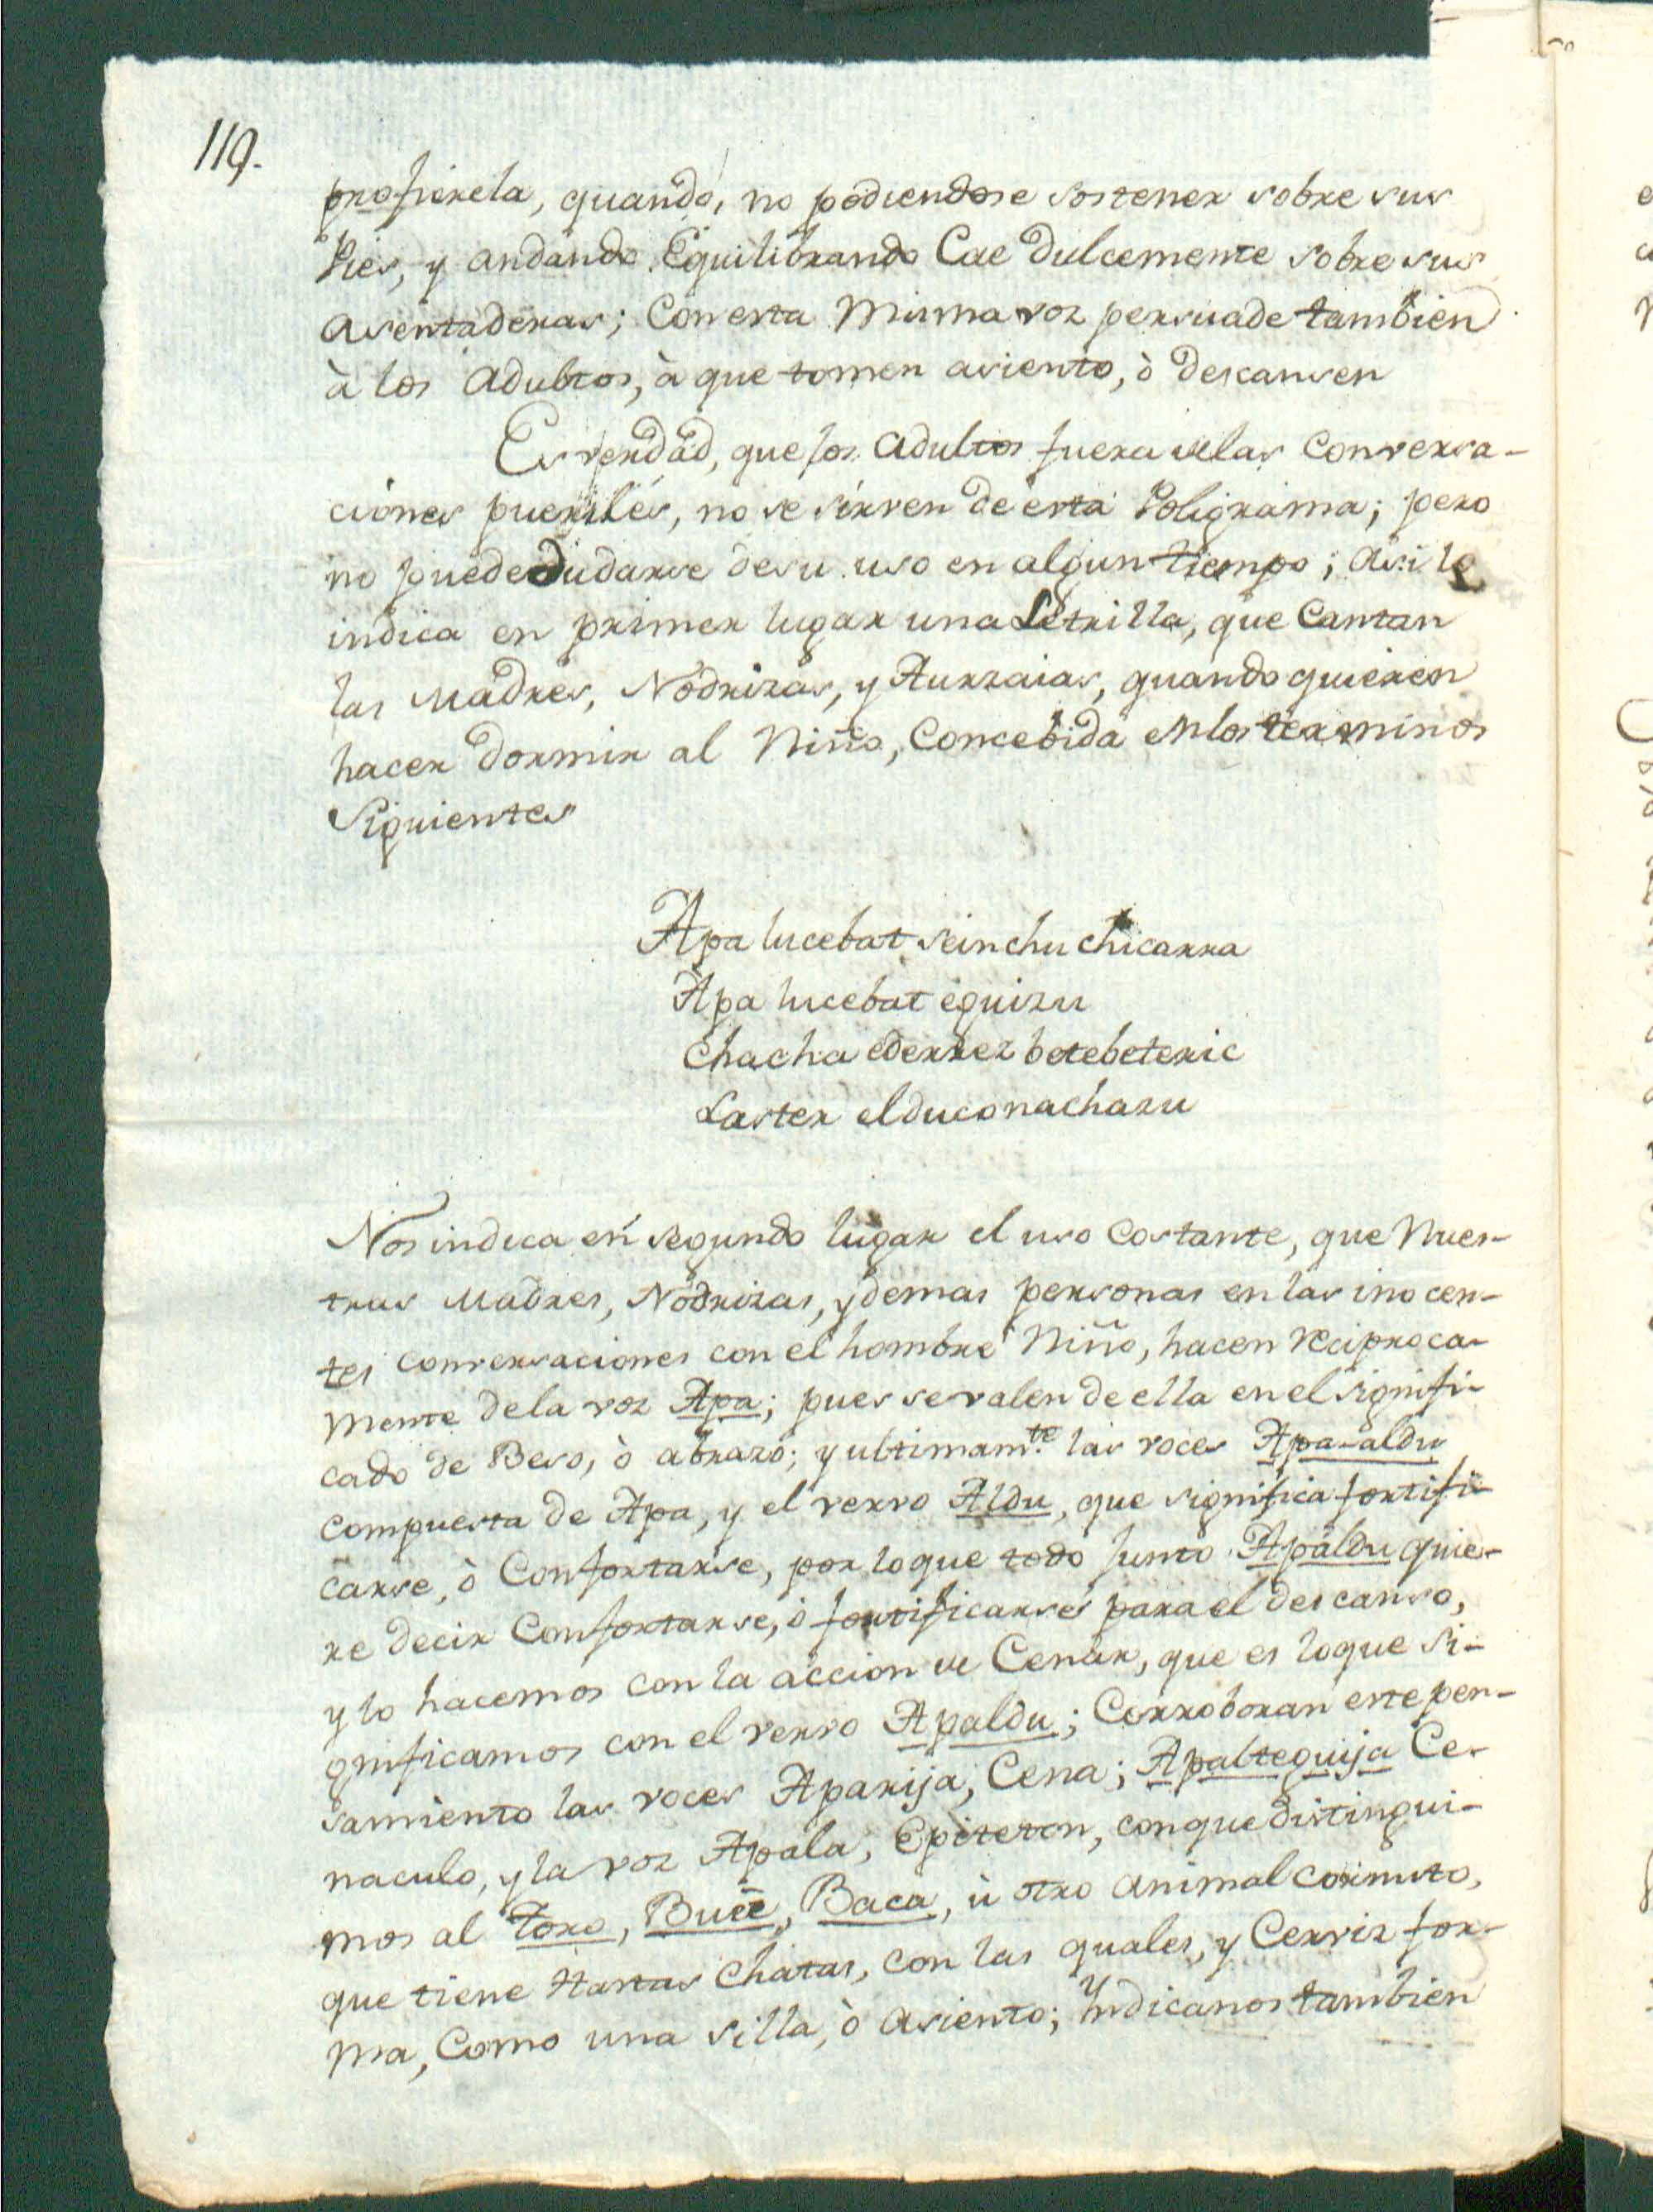 119.
profierela, quando, no podiendose sostener sobre sus
Pies, y andando Equilibrando Cae dulcemente sobre sus
asentaderas; Con esta Misma voz persuade tambien
à los adultos, à que tomen asiento, ò descansen
Es verdad, que los adultos fuera de las Conversa-
ciones pueriles, no se sirven de esta Poligrama; pero
no puede dudarse de su uso en algun tiempo; asi lo
indica en primer lugar una Letrilla, que Cantan
las Madres, Nodrizas, y Aurzaias, quando quieren
hacer dormir al Niño, Concebida en los terminos
Siguientes
Apa lucebat seinchu chicarra
Apa lucebat eguizu
Chacha ederrez betebeteric
Laster elduconachazu
Nos indica en segundo lugar el uso Costante, que Nues-
tras Madres, Nodrizas, y demas personas en las inocen-
tes conversaciones con el hombre Niño, hacen reciproca-
mente de la voz Apa; pues se valen de ella en el signifi-
cado de Beso, ò abrazo; y ultimam.te las voces Apa-aldu
compuesta de Apa, y el vervo Aldu, que significa fortifi-
carse, ò Confortarse, por lo que todo Junto Apaldu quie-
re decir Confortarse, ò fortificarse para el descanso,
y lo hacemos con la accion de Cenar, que es lo que si-
gnificamos con el vervo Apaldu; Corroboran este pen-
samiento las voces Aparija, Cena; Apalteguija Ce-
naculo, y la voz Apala, Epiteton, con que distingui-
mos al Toro, Buëe, Baca, ù otro animal cornuto,
que tiene Hastas Chatas, con las quales, y Cerviz for-
ma, Como una silla, ò asiento; Yndicanos tambien